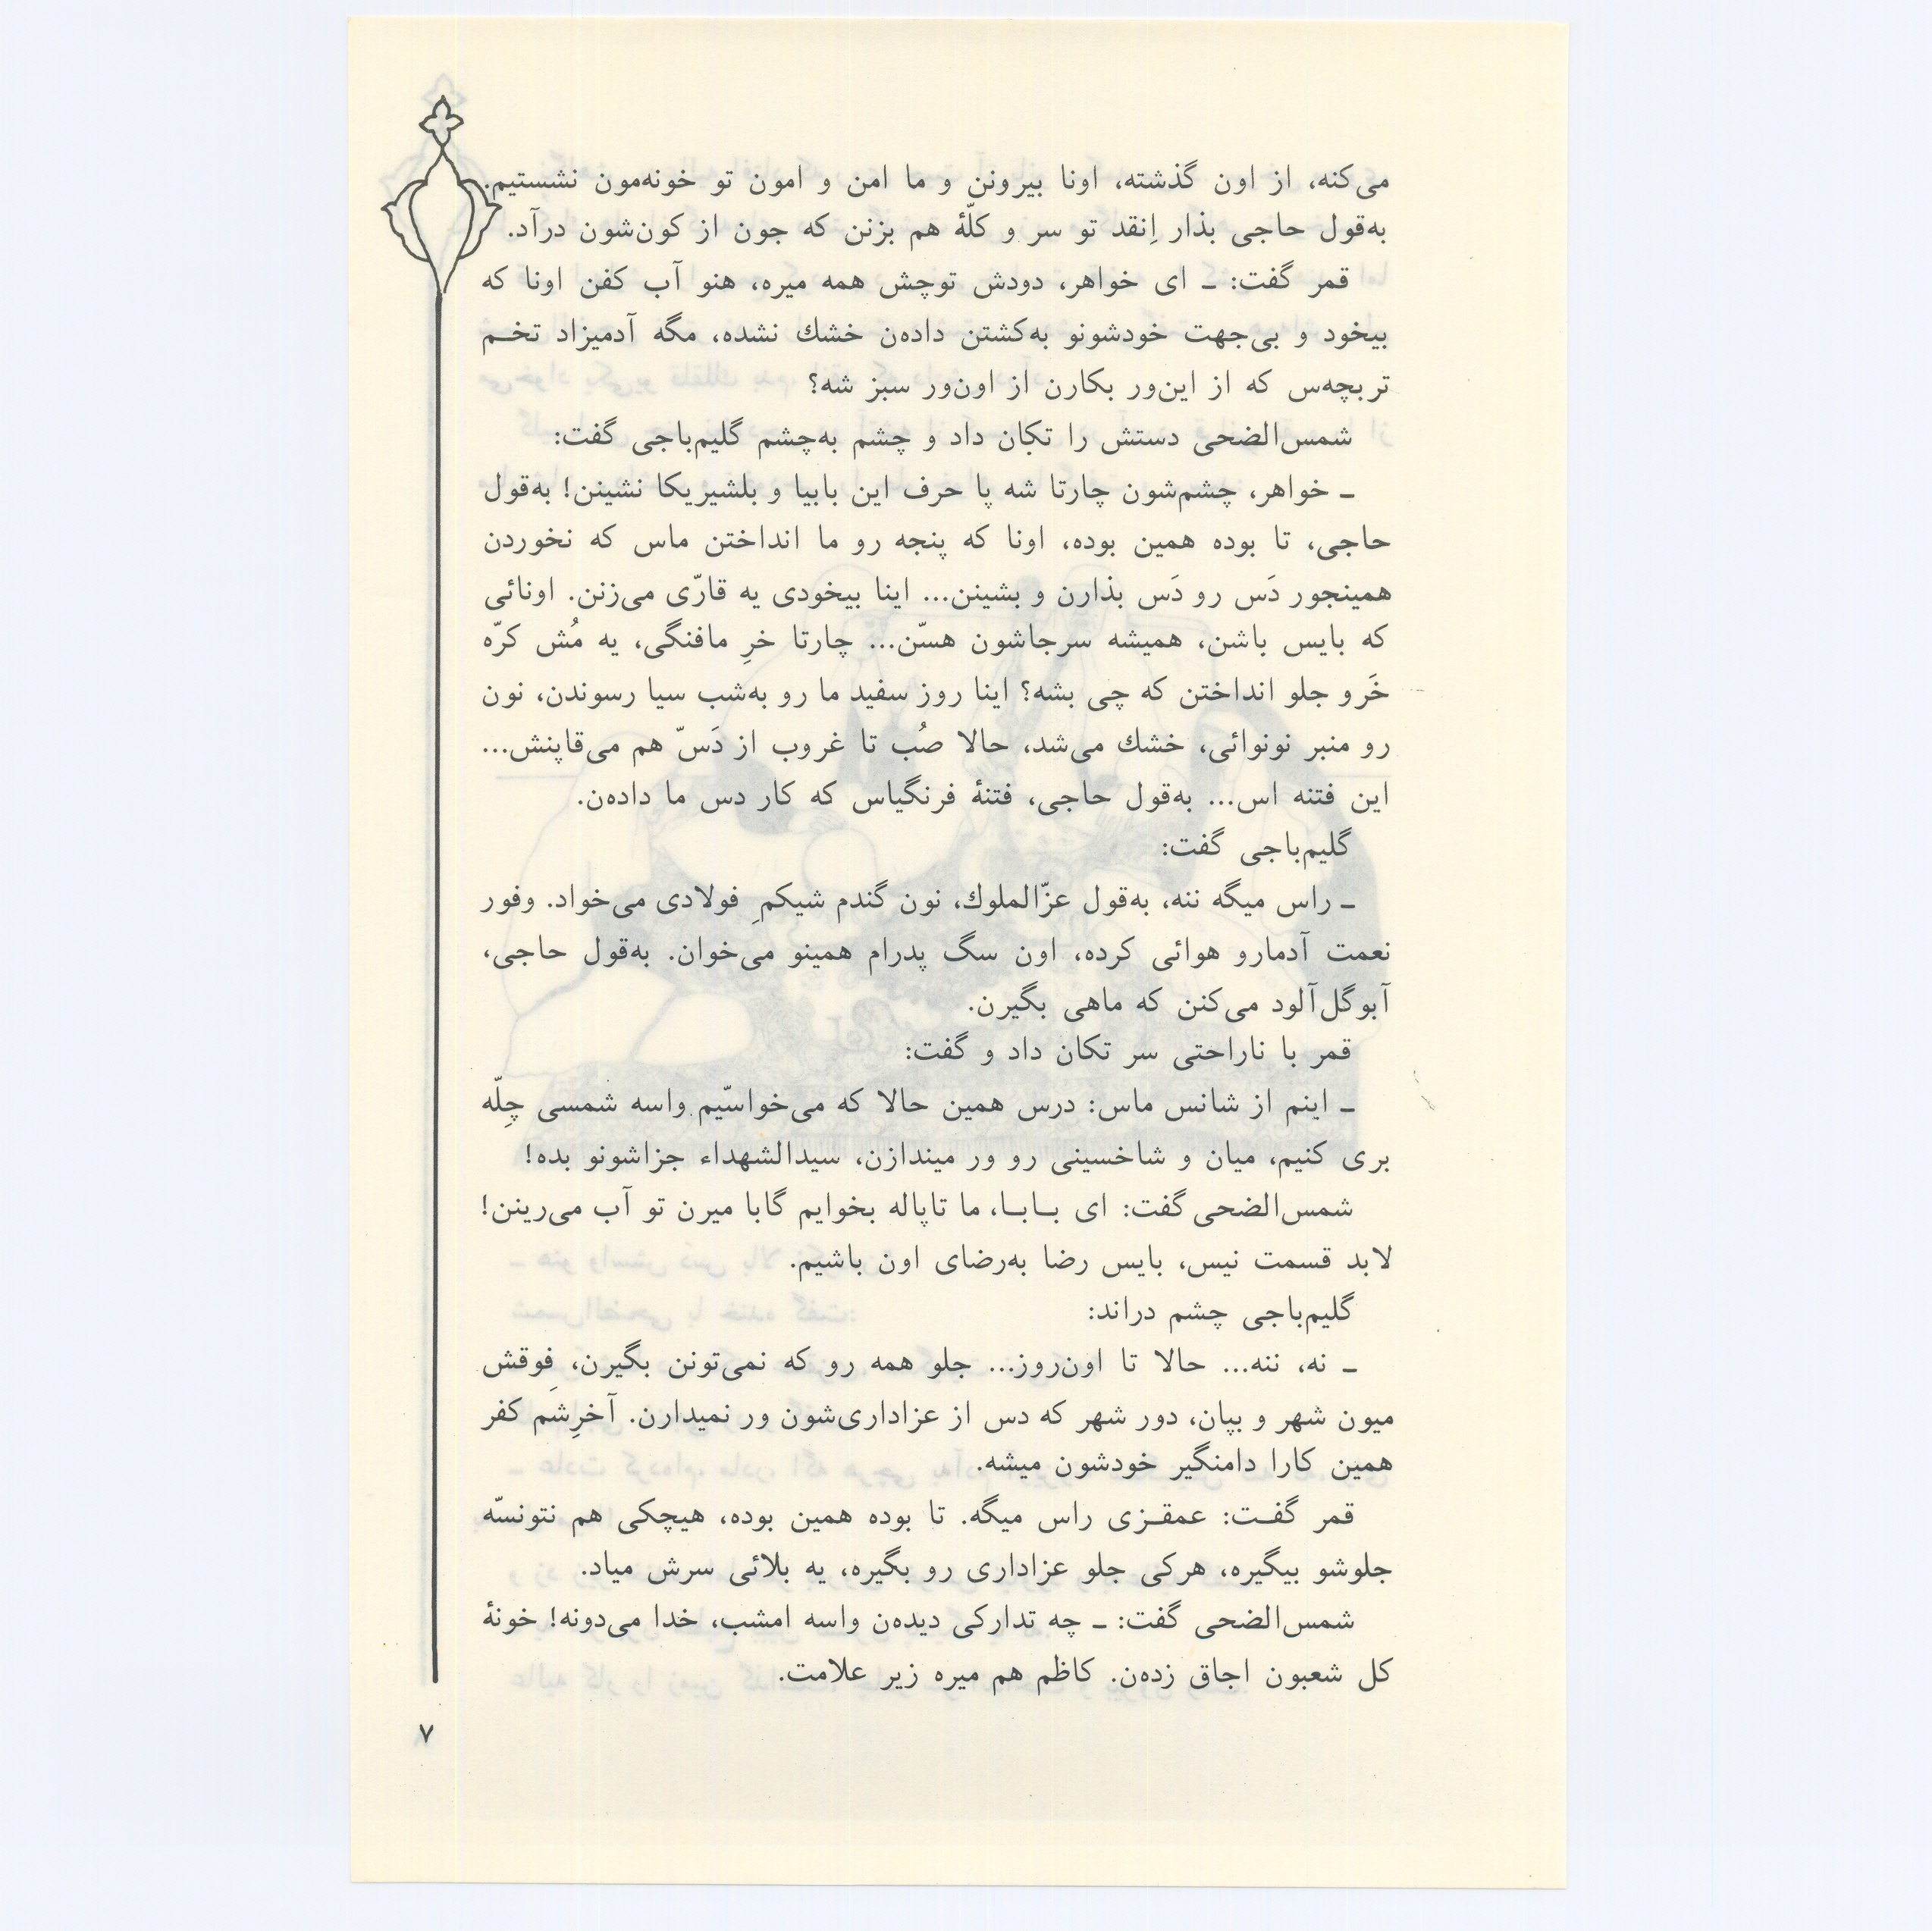 می‌کنه، از اون گذشته، اونا بیرونن و ما امن و امون تو خونه‌مون نشستیم.
به‌قول حاجی بذار اِنقد تو سر و کلّهٔ هم بزنن که جون از کون‌شون درآد.
قمر گفت: ـ ای خواهر، دودش توچش همه میره، هنو آب کفن اونا که
بیخود و بی‌جهت خودشونو به‌کشتن داده‌ن خشك نشده، مگه آدمیزاد تخـم
تربچه‌س که از این‌ور بکارن از اون‌ور سبز شه؟
شمس‌الضحی دستش را تکان داد و چشم به‌چشم گلیم‌باجی گفت:
ـ خواهر، چشم‌شون چارتا شه پا حرف این بابیا و بلشیریکا نشینن! به‌قول
حاجی، تا بوده همین بوده، اونا که پنجه رو ما انداختن ماس که نخوردن
همینجور دَس رو دَس بذارن و بشینن... اینا بیخودی یه قارّی می‌زنن. اونائی
که بایس باشن، همیشه سرجاشون هسّن... چارتا خرِ مافنگی، یه مُش کرّه
خَرو جلو انداختن که چی بشه؟ اینا روز سفید ما رو به‌شب سیا رسوندن، نون
رو منبر نونوائی، خشك می‌شد، حالا صُب تا غروب از دَسّ هم می‌قاپنش...
این فتنه اس... به‌قول حاجی، فتنهٔ فرنگیاس که کار دس ما داده‌ن.
گلیم‌باجی گفت:
ـ راس میگه ننه، به‌قول عزّالملوك، نون گندم شیکمِ فولادی می‌خواد. وفور
نعمت آدمارو هوائی کرده، اون سگ پدرام همینو می‌خوان. به‌قول حاجی،
آبوگل‌آلود می‌کنن که ماهی بگیرن.
قمر با ناراحتی سر تکان داد و گفت:
ـ اینم از شانس ماس: درس همین حالا که می‌خواسّیم واسه شمسی چِلّه
بری کنیم، میان و شاخسینی رو ور میندازن، سیدالشهداء جزاشونو بده!
شمس‌الضحی گفت: ای بـابـا، ما تاپاله بخوایم گابا میرن تو آب می‌رینن!
لابد قسمت نیس، بایس رضا به‌رضای اون باشیم.
گلیم‌باجی چشم دراند:
ـ نه، ننه... حالا تا اون‌روز... جلو همه رو که نمی‌تونن بگیرن، فِوقش
میون شهر و بپان، دور شهر که دس از عزاداری‌شون ور نمیدارن. آخرِشَم کفر
همین کارا دامنگیر خودشون میشه.
قمر گفـت: عمقـزی راس میگه. تا بوده همین بوده، هیچکی هم نتونسّه
جلوشو بیگیره، هرکی جلو عزاداری رو بگیره، یه بلائی سرش میاد.
شمس‌الضحی گفت: ـ چه تدارکی دیده‌ن واسه امشب، خدا می‌دونه! خونهٔ
کل شعبون اجاق زده‌ن. کاظم هم میره زیر علامت.
۷